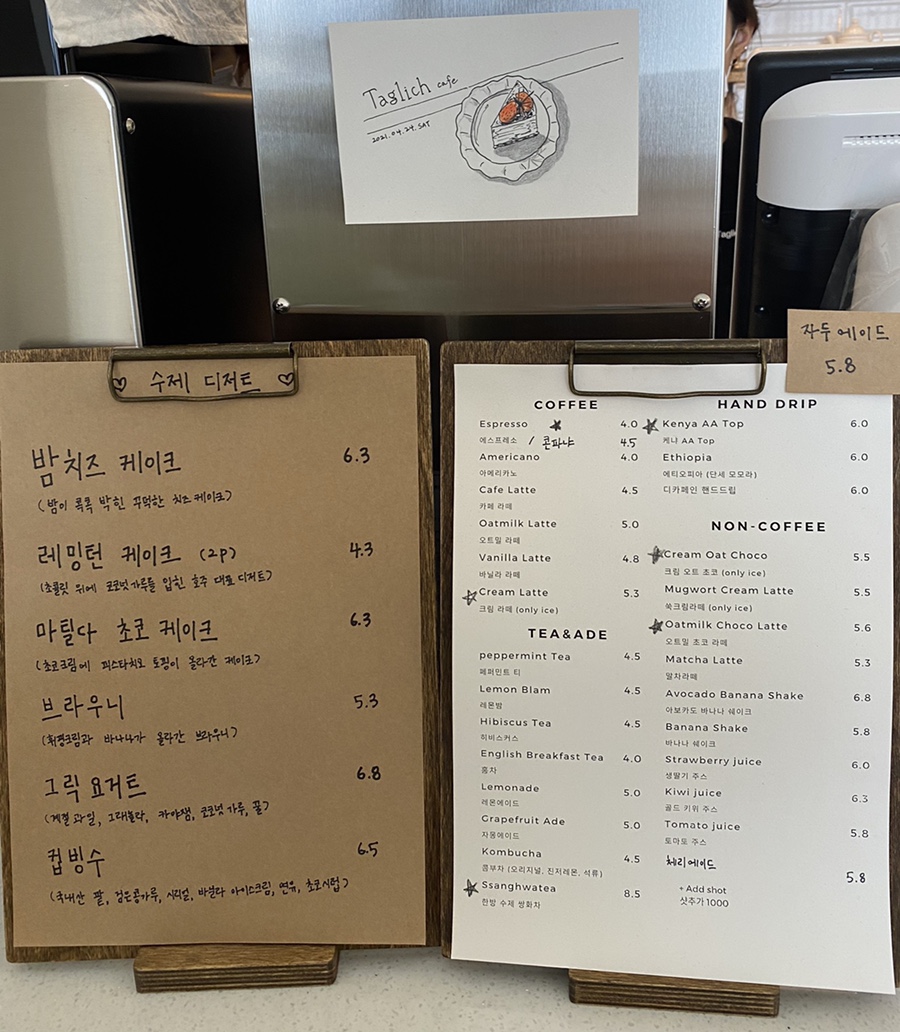 Taglich cafe
2021.04.24.SAT
수제 디저트
밤 치즈 케이크 6.3
(밤이 콕콕 박힌 꾸덕한 치즈케이크)
레밍턴 케이크 (2p) 4.3
(초콜릿 위에 코코넛가루를 입힌 호주 대표 디저트)
마틸다 초코 케이크 6.3
(초코크림에 피스타치오 토핑이 올라간 케이크)
브라우니 5.3
(휘핑크림과 바나나가 올라간 브라우니)
그릭 요거트 6.8
(계절과일, 그래놀라, 카야잼, 코코넛가루, 꿀)
컵빙수 6.5
(국내산 팥, 검은콩가루, 시리얼, 바닐라 아이스크림, 연유, 초코시럽)
자두에이드
5.8
COFFEE
Espresso 4.0
에스프레소 / 콘파냐 4.5
Americano 4.0
아메리카노
Cafe Latte 4.5
카페 라떼
Oatmilk Latte 5.0
오트밀 라떼
Vanilla Latte 4.8
바닐라 라떼
Cream Latte 5.3
크림 라떼 (only ice)
TEA&ADE
peppermint Tea 4.5
페퍼민트 티
Lemon Blam 4.5
레몬밤
Hibiscus Tea 4.5
히비스커스
English Breakfast Tea 4.0
홍차
Lemonade 5.0
레몬에이드
Grapefruit Ade 5.0
자몽에이드
Kombucha 4.5
콤부차 (오리지널, 진저레몬, 석류)
Ssanghwatea 8.5
한방 수제 쌍화차
HAND DRIP
Kenya AA Top 6.0
케냐 AA Top
Ethiopia 6.0
에티오피아 (단세 모모라)
디카페인 핸드드립 6.0
NON-COFFEE
Cream Oat Choco 5.5
크림 오트 초코 (only ice)
Mugwort Cream Latte 5.5
쑥크림라떼 (only ice)
Oatmilk Choco Latte 5.6
오트밀 초코 라떼
Matcha Latte 5.3
말차라떼
Avocado Banana Shake 6.8
아보카도 바나나 쉐이크
Banana Shake 5.8
바나나 쉐이크
Strawberry juice 6.0
생딸기 주스
Kiwi juice 6.3
골드 키위 주스
Tomato juice 5.8
토마토 주스
체리에이드 5.8
+ Add shot
샷추가 1000